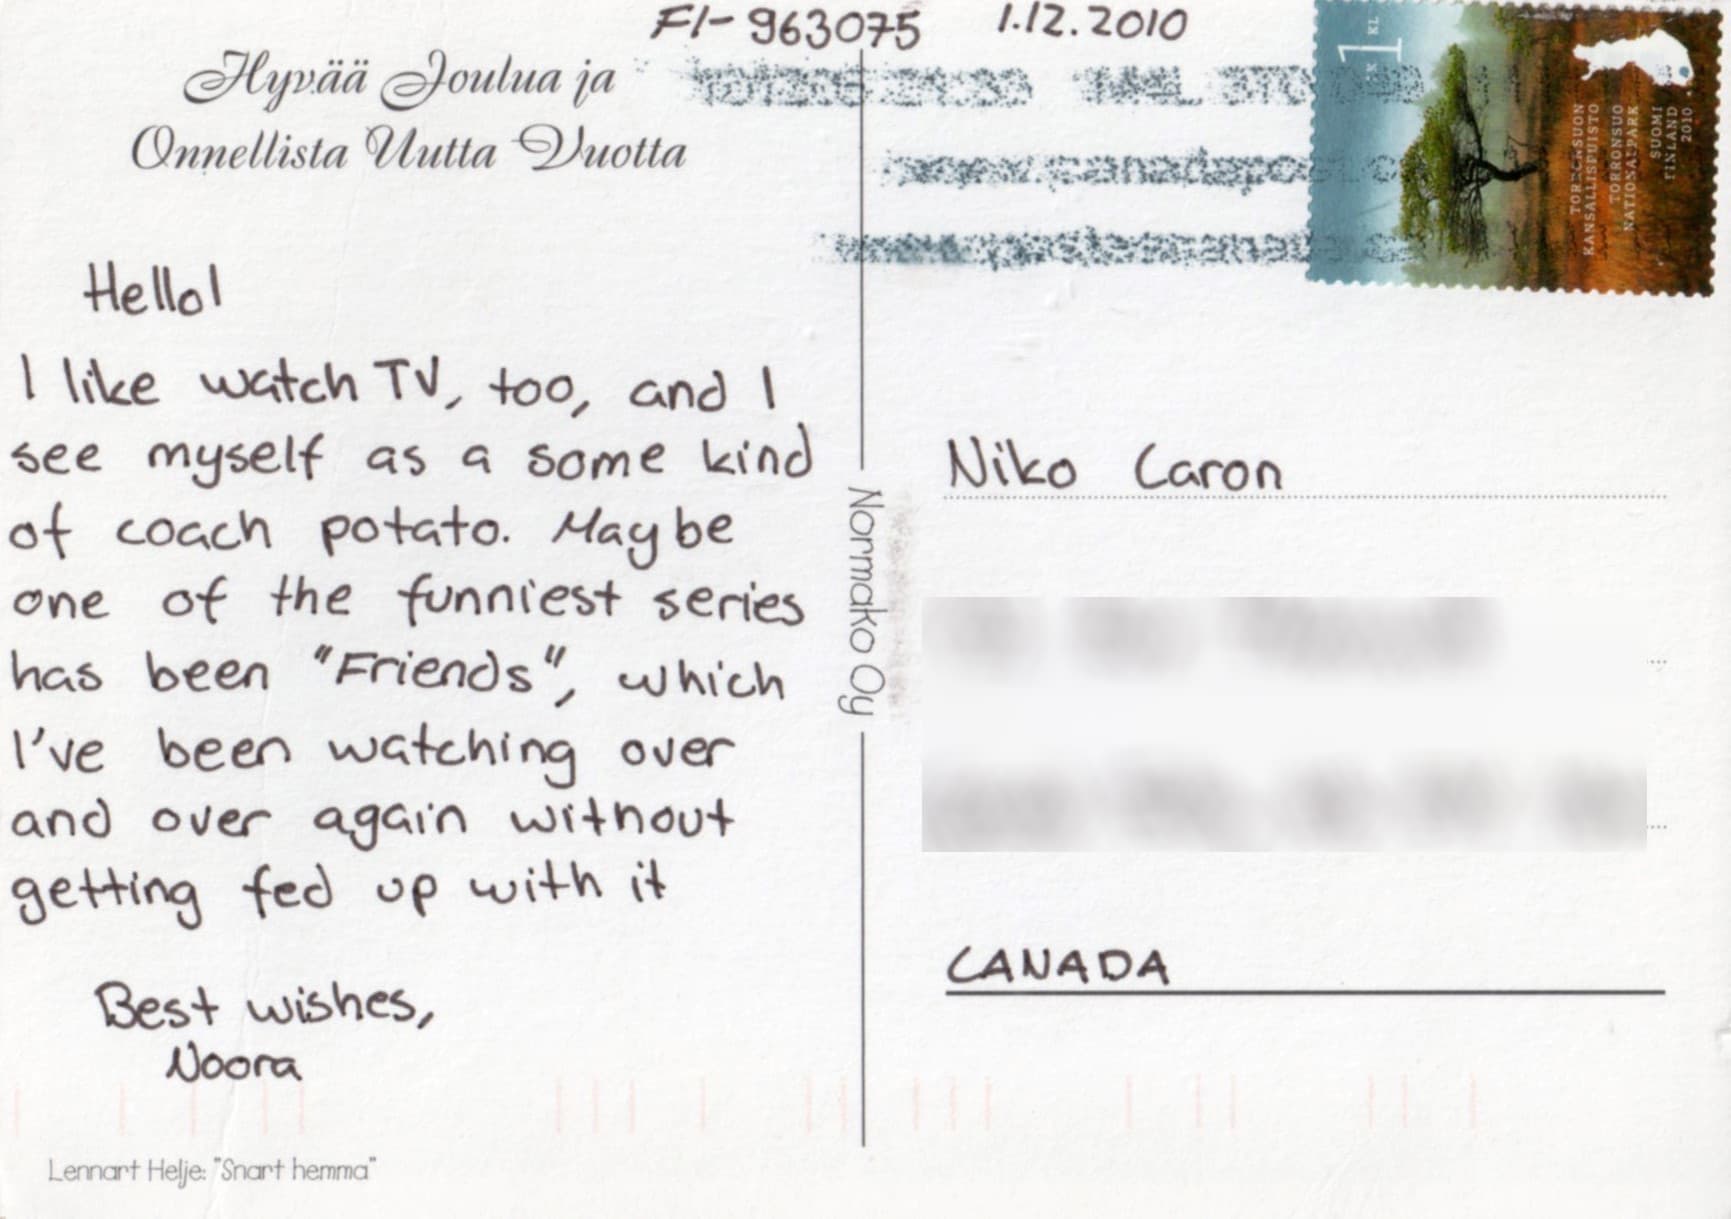 FI-963075 1.12.2010
Hyvää Joulua ja
Onnellista Uutta Vuotta
1 KL
LK
TORRONSUON
KANSALLISPUISTO
TORRONSUO
NATIONALPARK
SUOMI
FINLAND
2010
Hello!
I like watch TV, too, and I
see myself as a some kind
of coach potato. Maybe
one of the funniest series
has been "Friends", which
I've been watching over
and over again without
getting fed up with it
Best wishes,
Noora
Normako Oy
Niko Caron
CANADA
Lennart Helje: "Snart hemma"